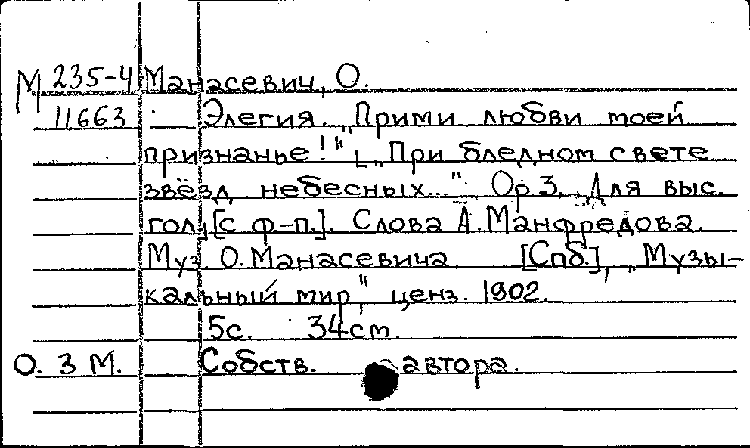 М 235-4 Манасевич, О.
11663 Элегия. „Прими любви моей
признанье!" [„При бледном свете
звёзд небесных..." Ор 3. Для выс.
гол. [с ф-п.]. Слова А. Манфредова.
Муз. О. Манасевича. [Спб.], „Музы-
кальный мир", ценз. 1902.
5с. 34cm.
О. З М. Собств. автора.